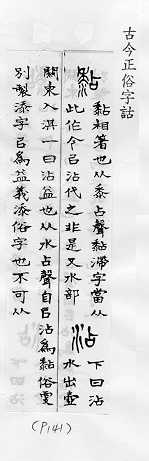 古今正俗字詁
黏
黏相著也从黍占聲黏滯字當从
此作今㠯沾代之非是又水部
沾
下曰沾
水出壺
關東入淇一曰沾益也从水占聲自㠯沾為黏俗㪅
別製添字㠯為益義添俗字也不可从
(P141)